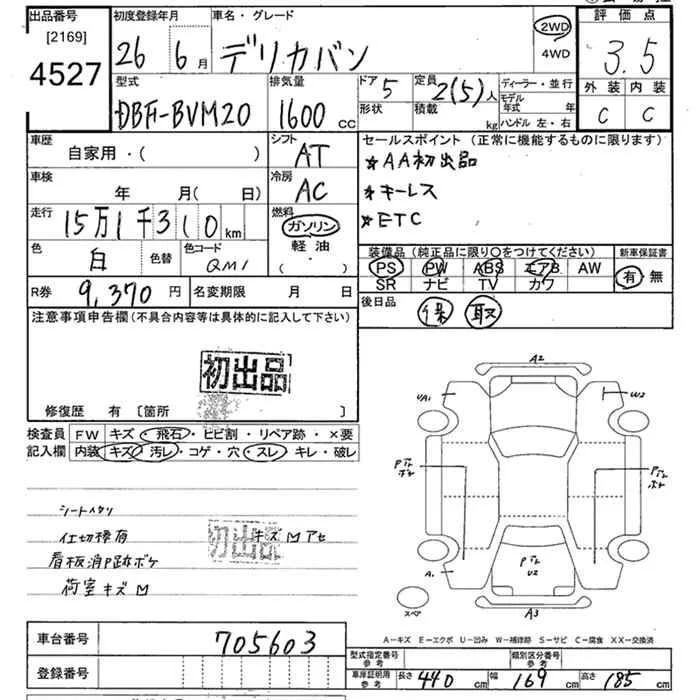 出品番号 [2169] 4527
初度登録年月 26 6月
車名・グレード デリカバン
2WD 4WD
評価点 3.5
外装 C 内装 C
型式 DBF-BVM20
排気量 1600 cc
ドア 5 形状
定員 2(5)人 積載 kg
ディーラー・並行
モデル年式 年
ハンドル 左・右
車歴 自家用・( )
シフト AT
車検 年 月(日)
冷房 AC
走行 15万1千310km
燃料 ガソリン 軽油 ( ・ )
色 白 色替 色コード QM1
R券 9,370円 名変期限 月 日
セールスポイント(正常に機能するものに限ります)
*AA初出品
*キーレス
*ETC
装備品(純正品に限り○をつけてください)
PS PW ABS エアB AW
SR ナビ TV カワ
新車保証書 有 無
後日品 保 取
注意事項申告欄(不具合内容等は具体的に記入して下さい)
初出品
修復歴 有 〔箇所 〕
検査員記入欄
FW キズ・飛石・ヒビ割・リペア跡・×要
内装 キズ・汚レ・コゲ・穴・スレ・キレ・破レ
シートヘタリ
仕切棒有 キズ M アセ
初出品
看板消ア跡ボケ
荷室キズ M
A2
UA1
W2
A1
U2
A3
スペア
A−キズ E−エクボ U−凹み W−補修跡 S−サビ C−腐食 XX−交換済
車台番号 705603
登録番号
型式指定番号 参考
類別区分番号 参考
車庫証明用 参考 長さ 440cm 幅 169cm 高さ 185cm